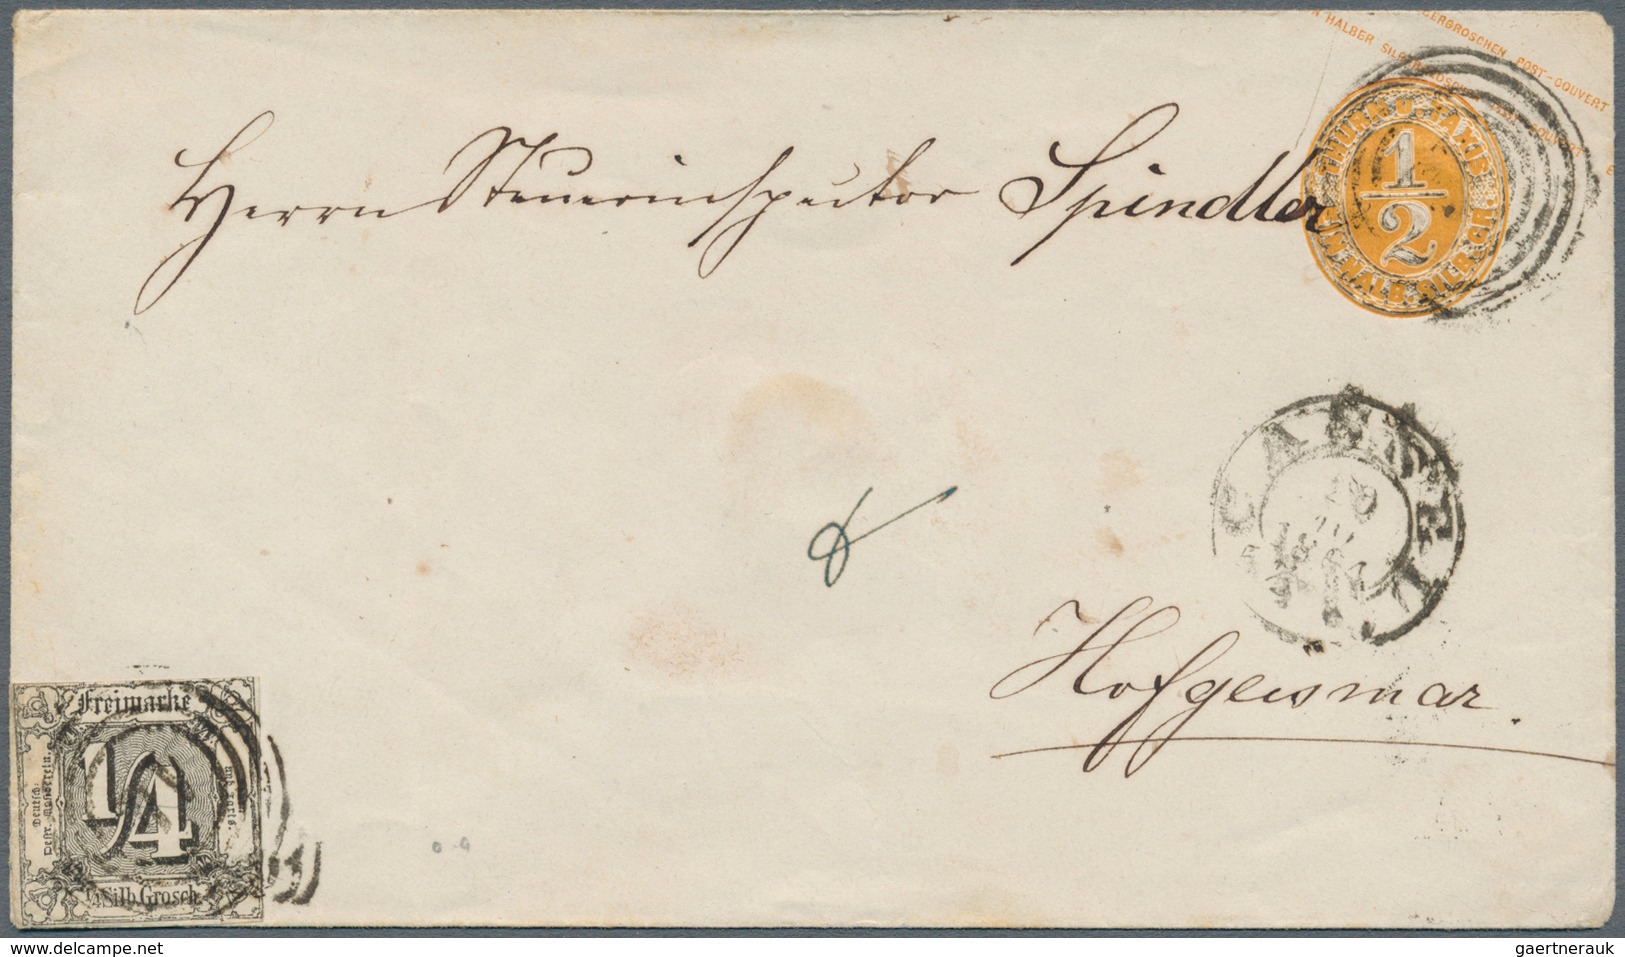 HALBER SILBERGROSCHEN POST-COUVERT
THURN U. TAXIS
1/2
EIN HALB. SILBERGR.
Herrn Steuerinspector Spindler
CASSEL
Hofgeismar.
Freimarke
Deutsch-
Oestr. Postverein.
1/4
1/4 Silb. Grosch.
delcampe.net
gaertnerauk